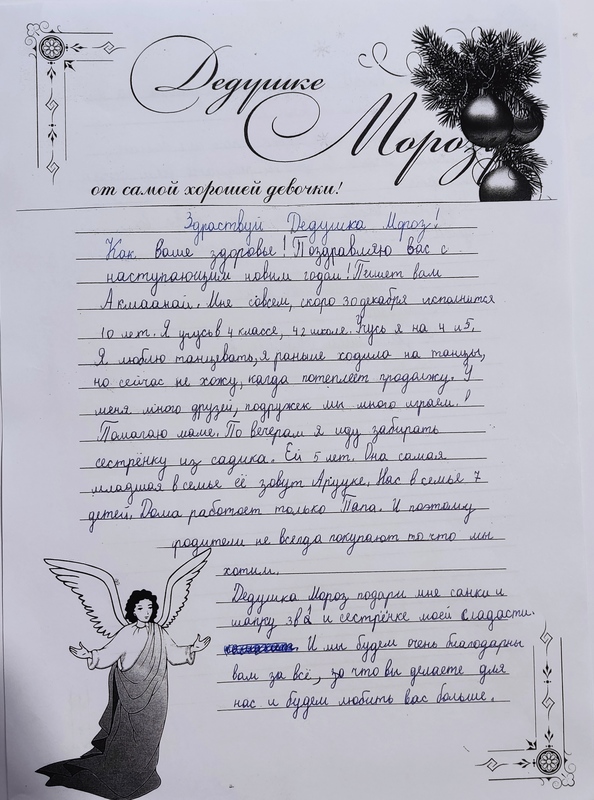 Дедушке
Морозу
от самой хорошей девочки!
Здраствуй Дедушка Мороз!
Как ваше здоровье! Поздравляю вас с
наступающим новим годом! Пишет вам
Акмаанай. Мне совсем, скоро 30 декабря исполнится
10 лет. Я учусь в 4 классе, 42 школе. Учусь я на 4 и 5.
Я люблю танцевать, я раньше ходила на танцы,
но сейчас не хожу, кагда потеплеет продолжу. У
меня много друзей, подружек мы много играем.!
Помагаю маме. По вечерам я иду забирать
сестрёнку из садика. Ей 5 лет. Она самая
младшая в семье её зовут Арууке. Нас в семье 7
детей. Дома работает только Папа. И поэтому
родители не всегда покупают то что мы
хотим.
Дедушка Мороз подари мне санки и
шапку и сестрёнке моей сладасти.
И мы будем очень благодарны
вам за всё, за что вы делаете для
нас и будем любить вас больше.